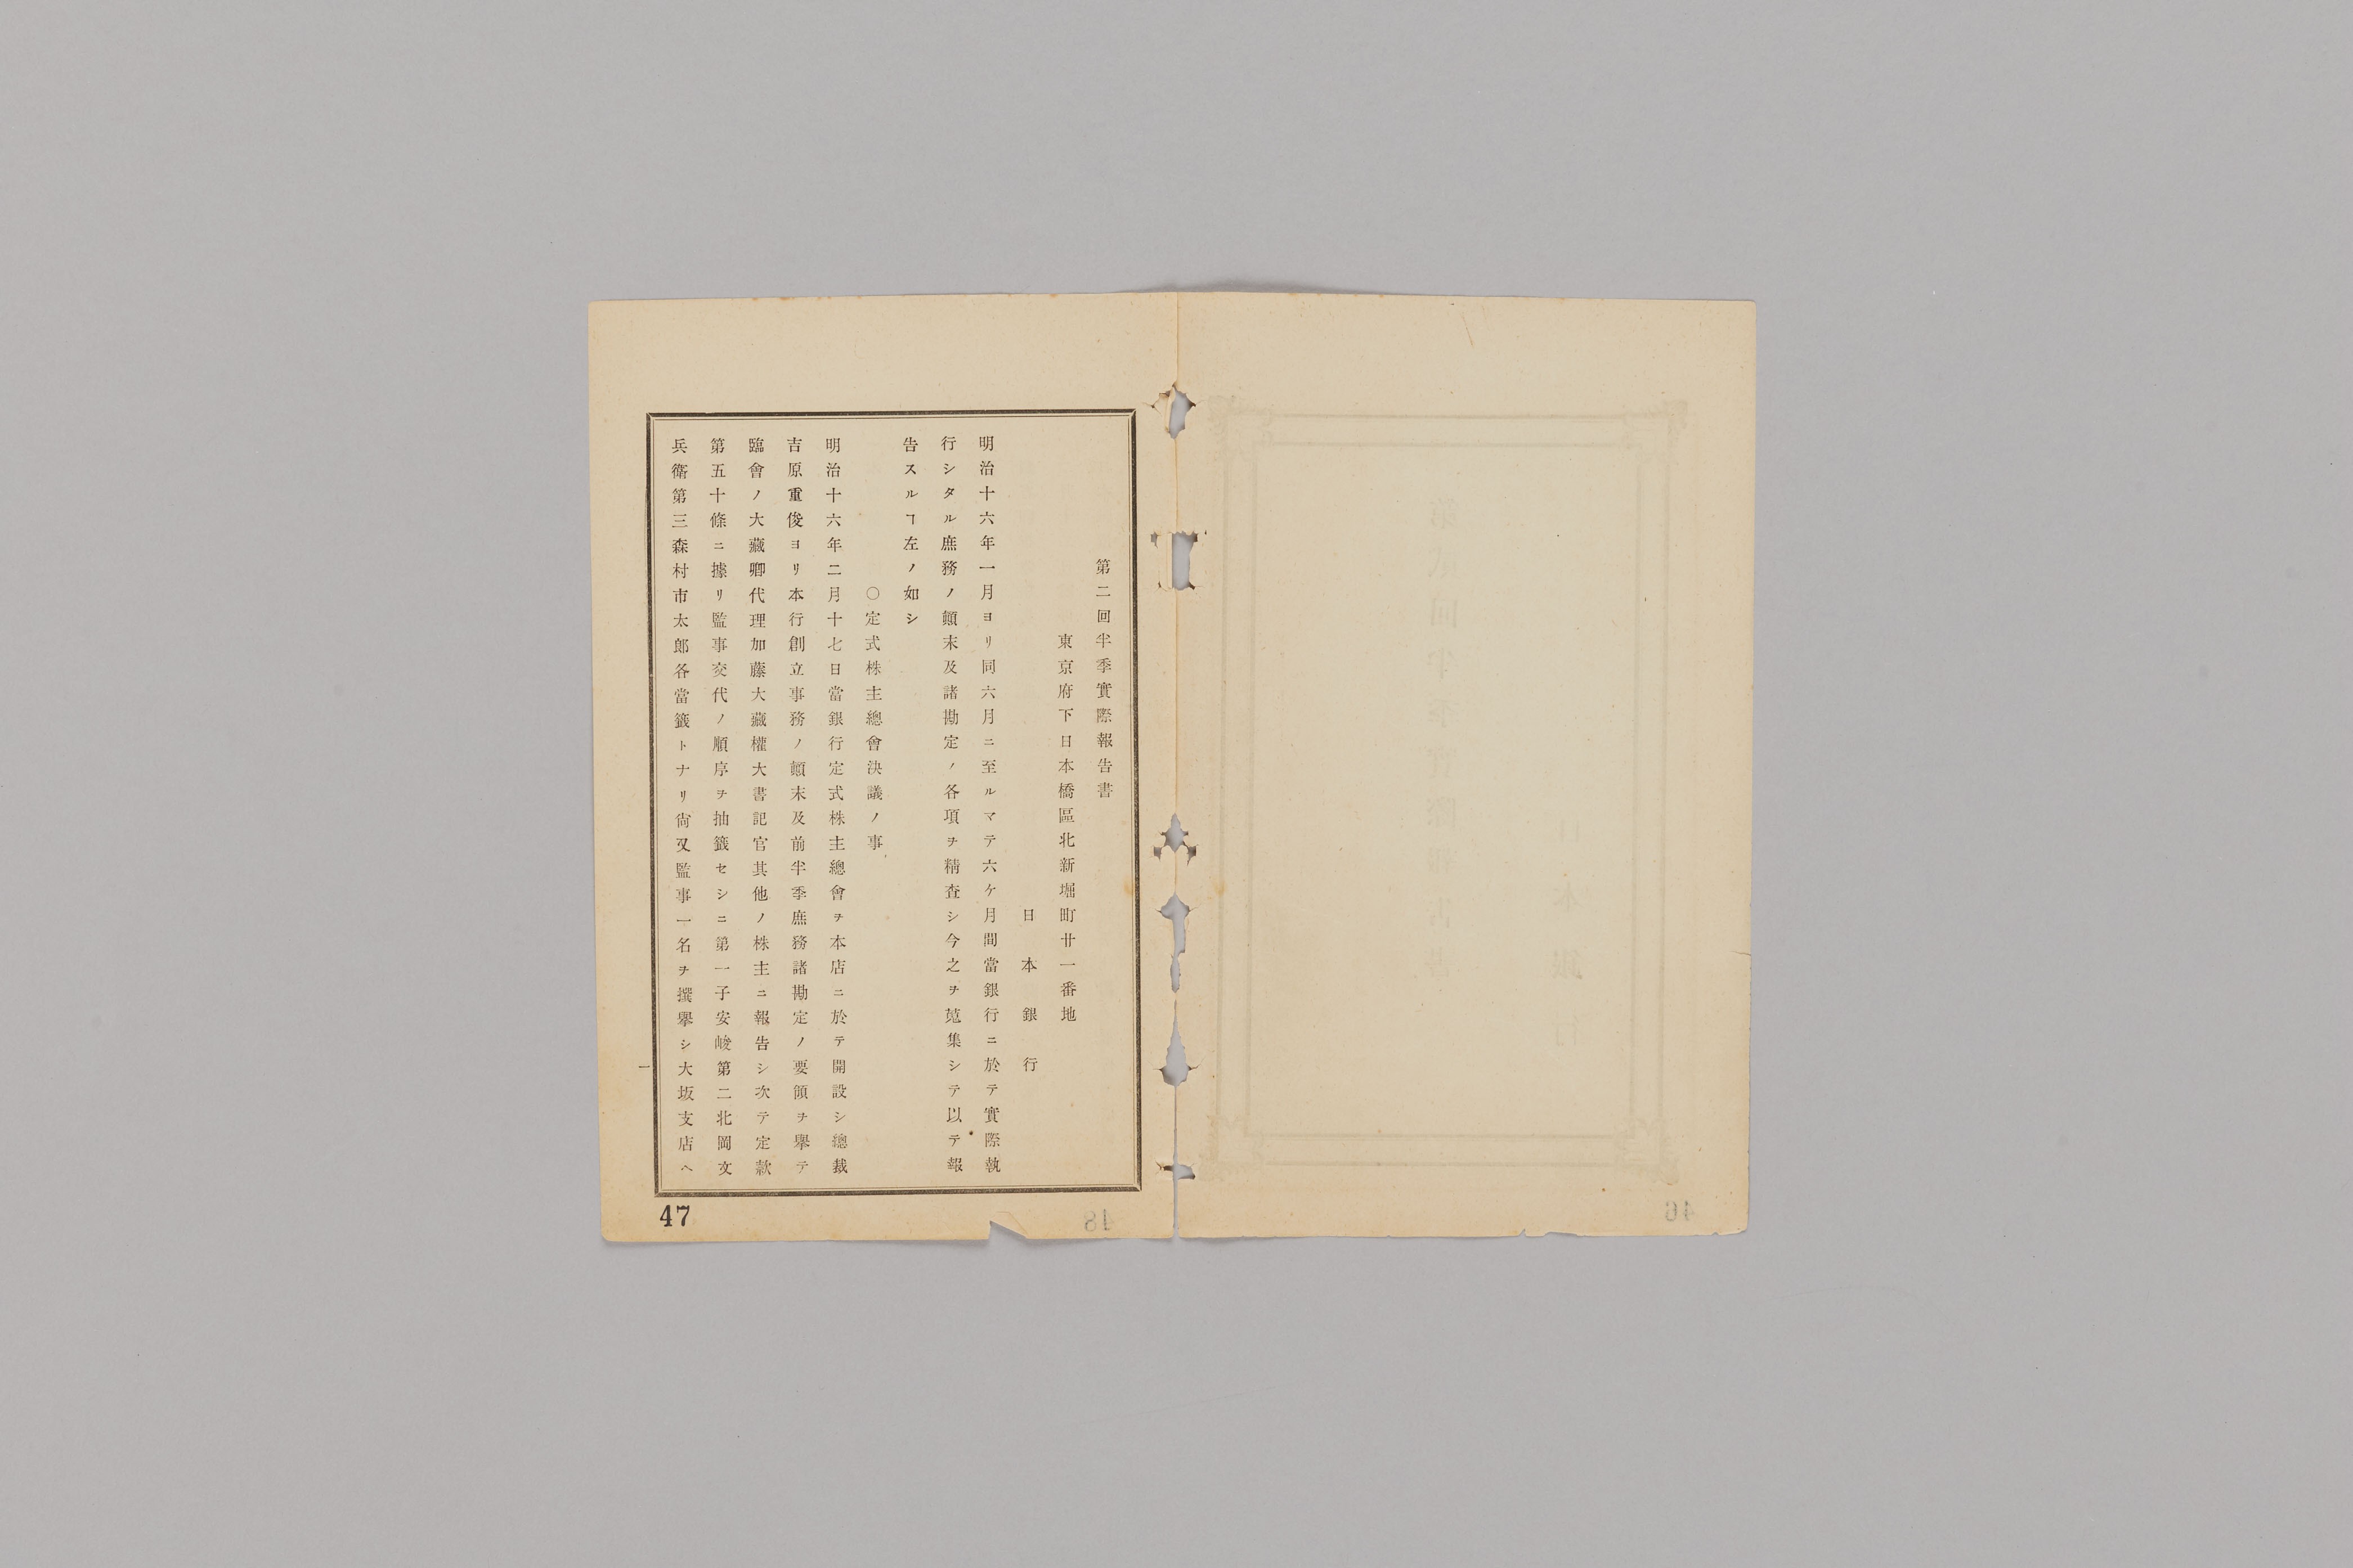 第二回半季實際報告書
東京府下日本橋區北新堀町廿一番地
日本銀行
明治十六年一月ヨリ同六月ニ至ルマテ六ケ月間當銀行ニ於テ實際執
行シタル庶務ノ顚末及諸勘定ノ各項ヲ精査シ今之ヲ蒐集シテ以テ報
告スルヿ左ノ如シ
○定式株主總會決議ノ事
明治十六年二月十七日當銀行定式株主總會ヲ本店ニ於テ開設シ總裁
吉原重俊ヨリ本行創立事務ノ顚末及前半季庶務諸勘定ノ要領ヲ擧テ
臨會ノ大藏卿代理加藤大藏權大書記官其他ノ株主ニ報告シ次テ定款
第五十條ニ據リ監事交代ノ順序ヲ抽籤セシニ第一子安峻第二北岡文
兵衛第三森村市太郎各當籤トナリ尙又監事一名ヲ撰擧シ大坂支店ヘ
一
47